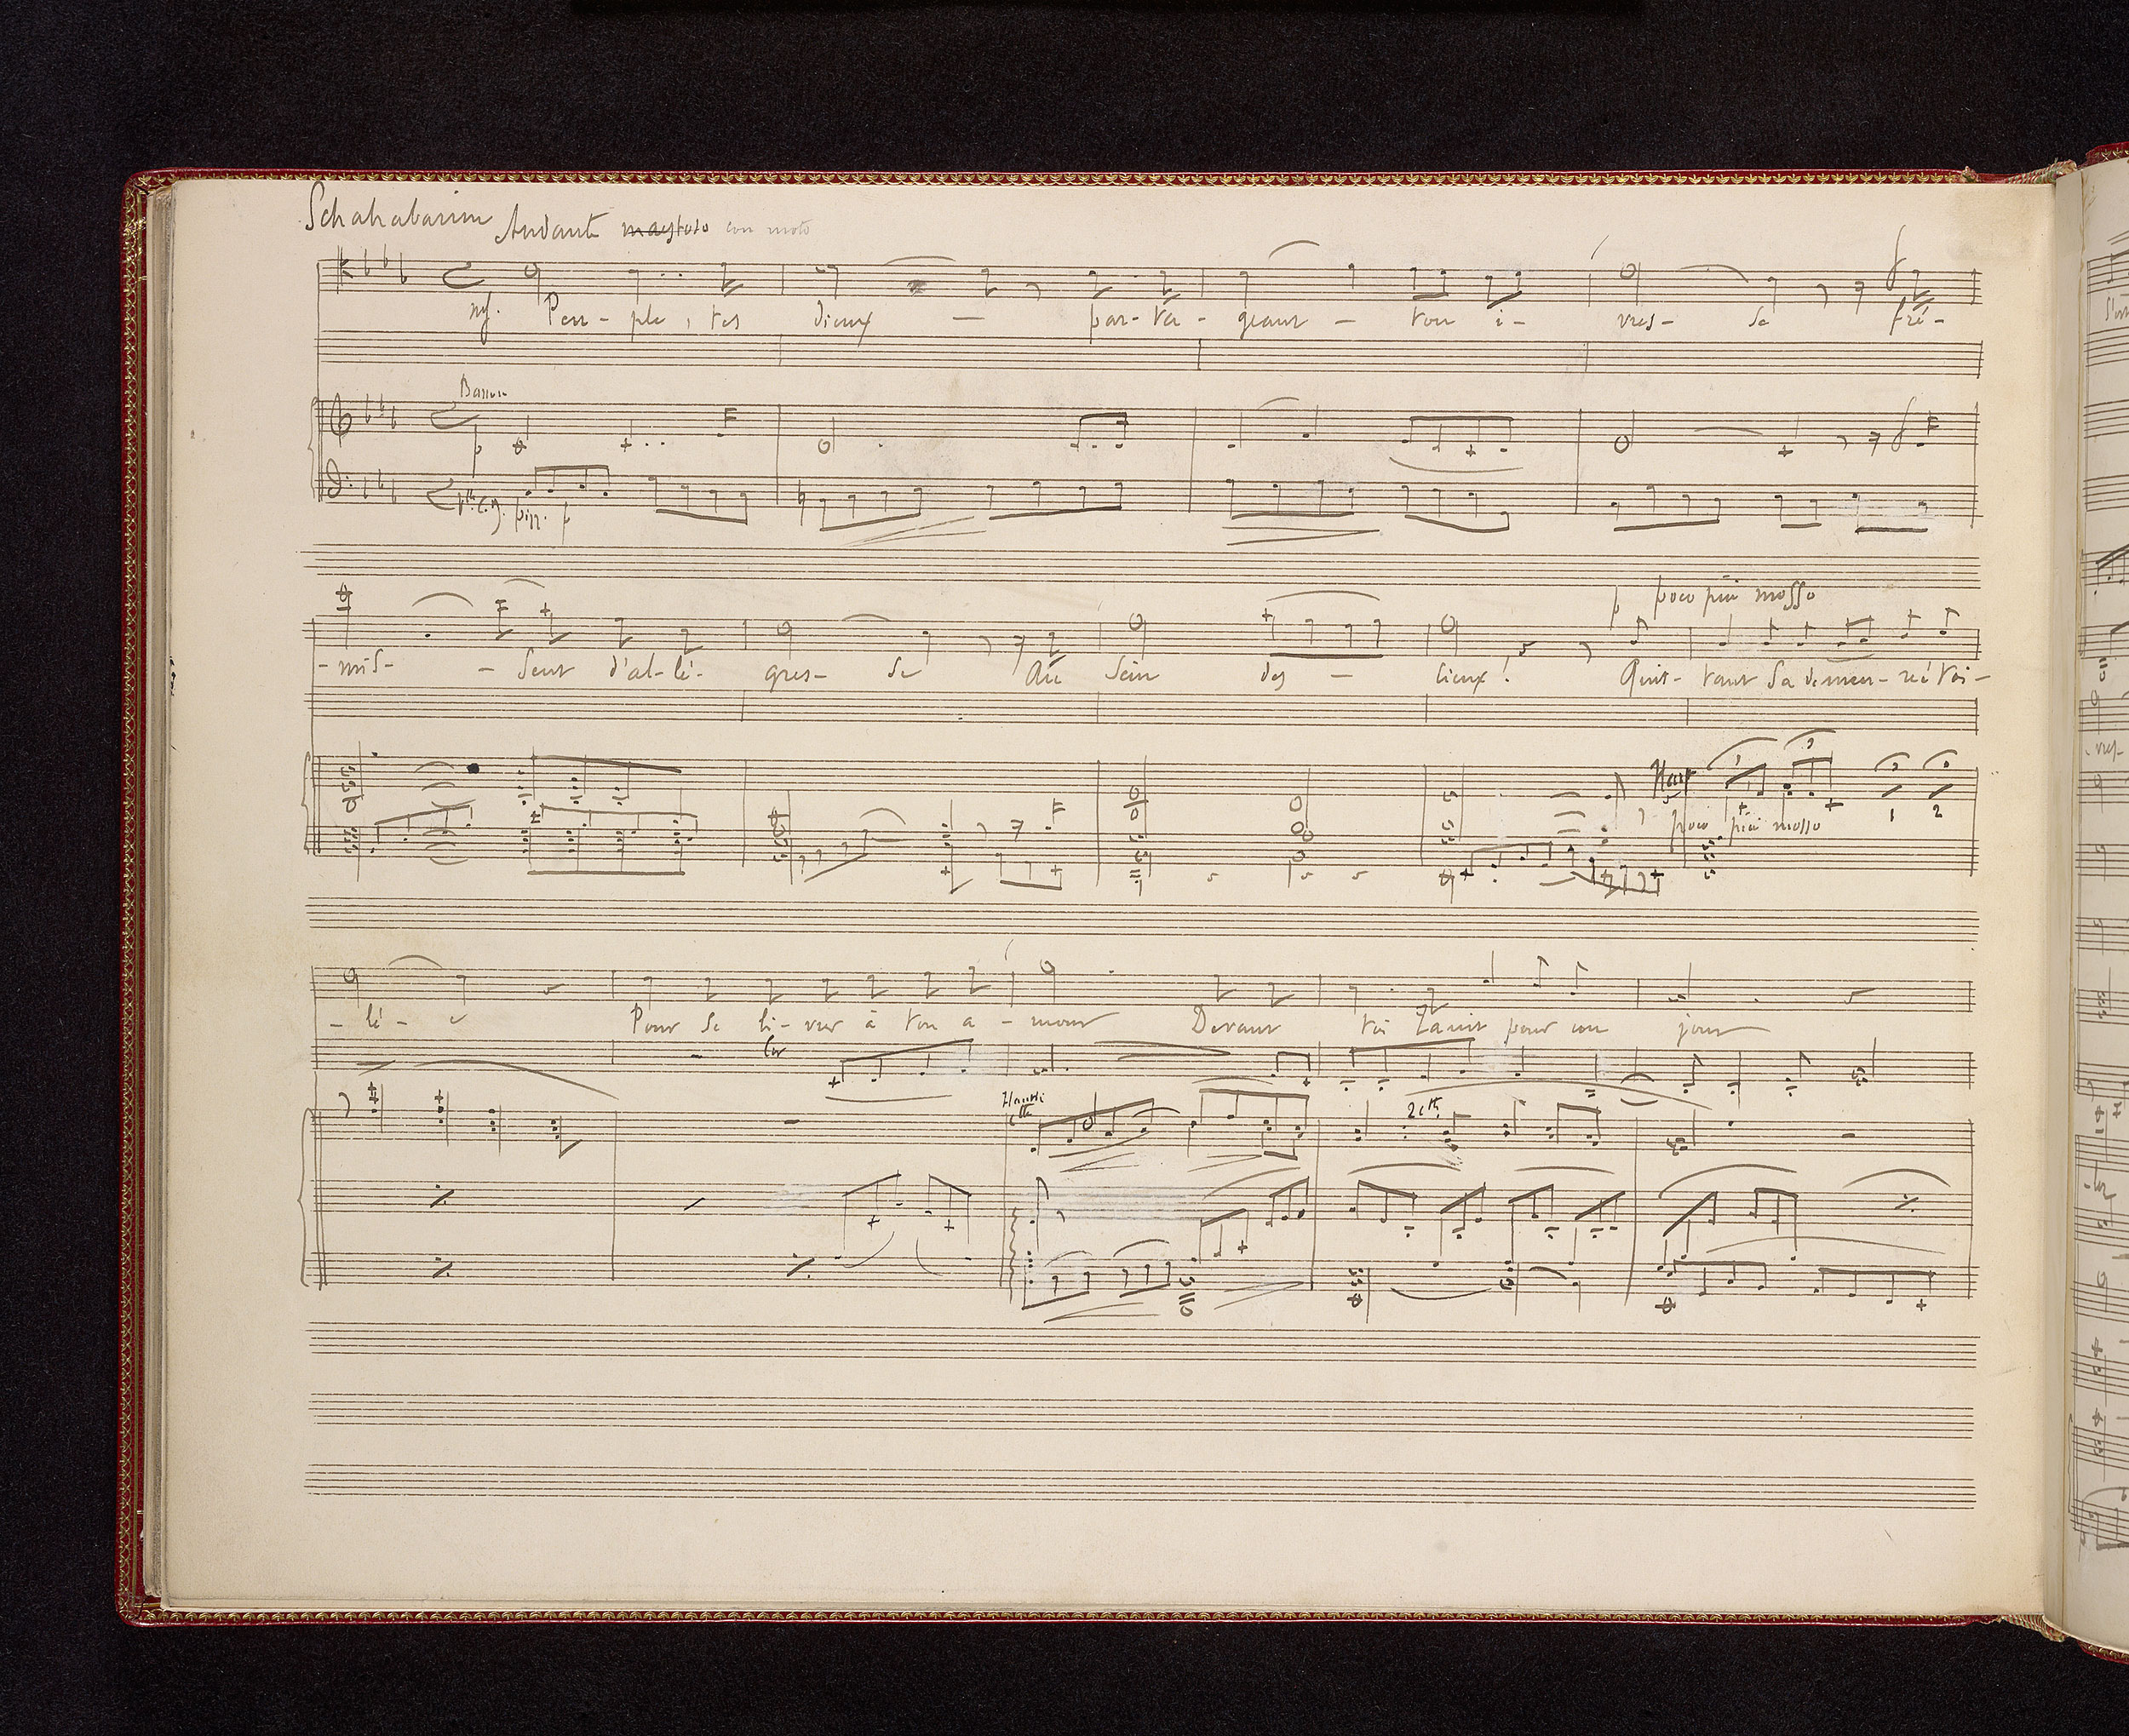 Schahabarim Andante maestoso con moto
mf. Peu - ple, tes dieux - par - ta - geant - ton i - vres - se fré -
Basson
p
pizz. p
p poco più mosso
- mis - - sent d'al - lé - gres - se Au sein des - cieux! Quit - tant sa demeu - re é toi -
Harp
3 3
poco più mosso 1 2
- lé - e Pour se li - vrer à ton a - mour Devant toi Tanit pour un jour
Cor
Hautb